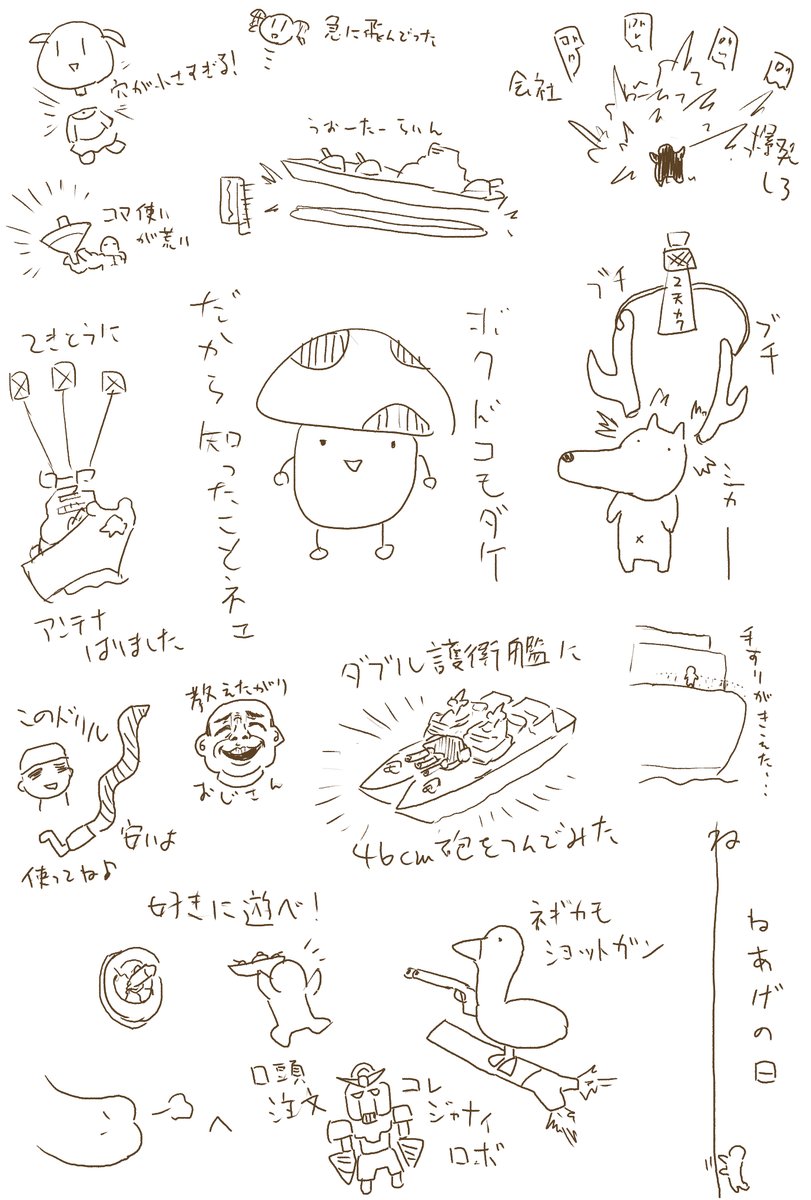 穴が小さすぎる!
急に飛んでった
会社
爆発
しろ
うぉーたーらいん
コマ使い
が荒い
ブチ
ブチ
エ天カワ
シカー
てきとうに
アンテナ
はりました
ボクドコモダケ
だから知ったことネエ
このドリル
安いよ
使ってね♪
教えたがり
おじさん
ダブル護衛艦に
46cm砲をつんでみた
手すりがきえた・・・
好きに遊べ!
ネギカモ
ショットガン
ね
ねあげの日
口頭
注文
コレ
ジャナイ
ロボ
へ